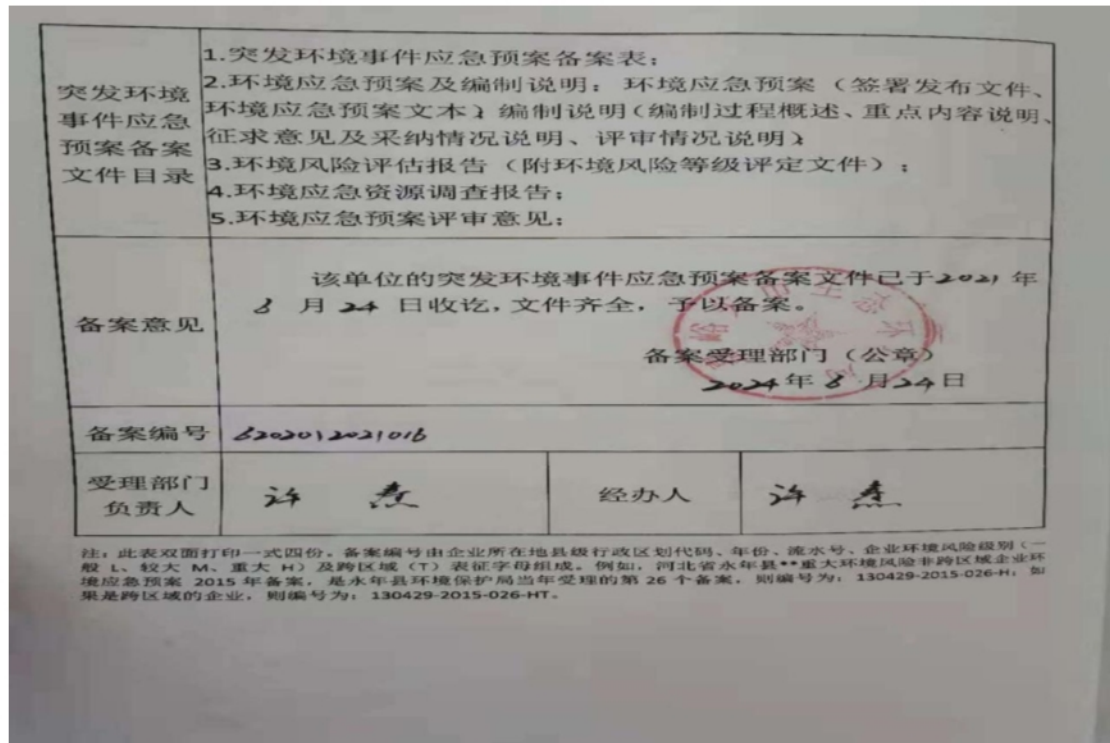 突发环境事件应急预案备案文件目录
1.突发环境事件应急预案备案表;
2.环境应急预案及编制说明: 环境应急预案（签署发布文件、
环境应急预案文本）编制说明(编制过程概述、重点内容说明、
征求意见及采纳情况说明、评审情况说明)
3.环境风险评估报告（附环境风险等级评定文件）;
4.环境应急资源调查报告;
5.环境应急预案评审意见;
备案意见
该单位的突发环境事件应急预案备案文件已于2021年
8 月 24 日收讫,文件齐全，予以备案。
备案受理部门（公章）
2024年 8 月24日
备案编号 6202012021016
受理部门
负责人
许
经办人
许
注: 此表双面打印一式四份。备案编号由企业所在地县级行政区划代码、年份、流水号、企业环境风险级别（一
般 L、较大 M、重大 H）及跨区域（T）表征字母组成。例如, 河北省永年县**重大环境风险非跨区域企业环
境应急预案 2015 年备案, 是永年县环境保护局当年受理的第 26 个备案, 则编号为: 130429-2015-026-H; 如
果是跨区域的企业, 则编号为: 130429-2015-026-HT。